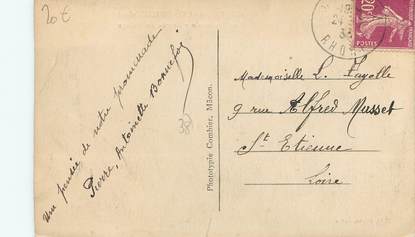 20€
Un pensée de notre promenade
Pierre, Antoinette Bonnefoy
Phototypie Combier, Mâcon.
RHONE
20c
POSTES
Mademoiselle L. Fayolle
9 rue Alfred Musset
St Etienne
Loire